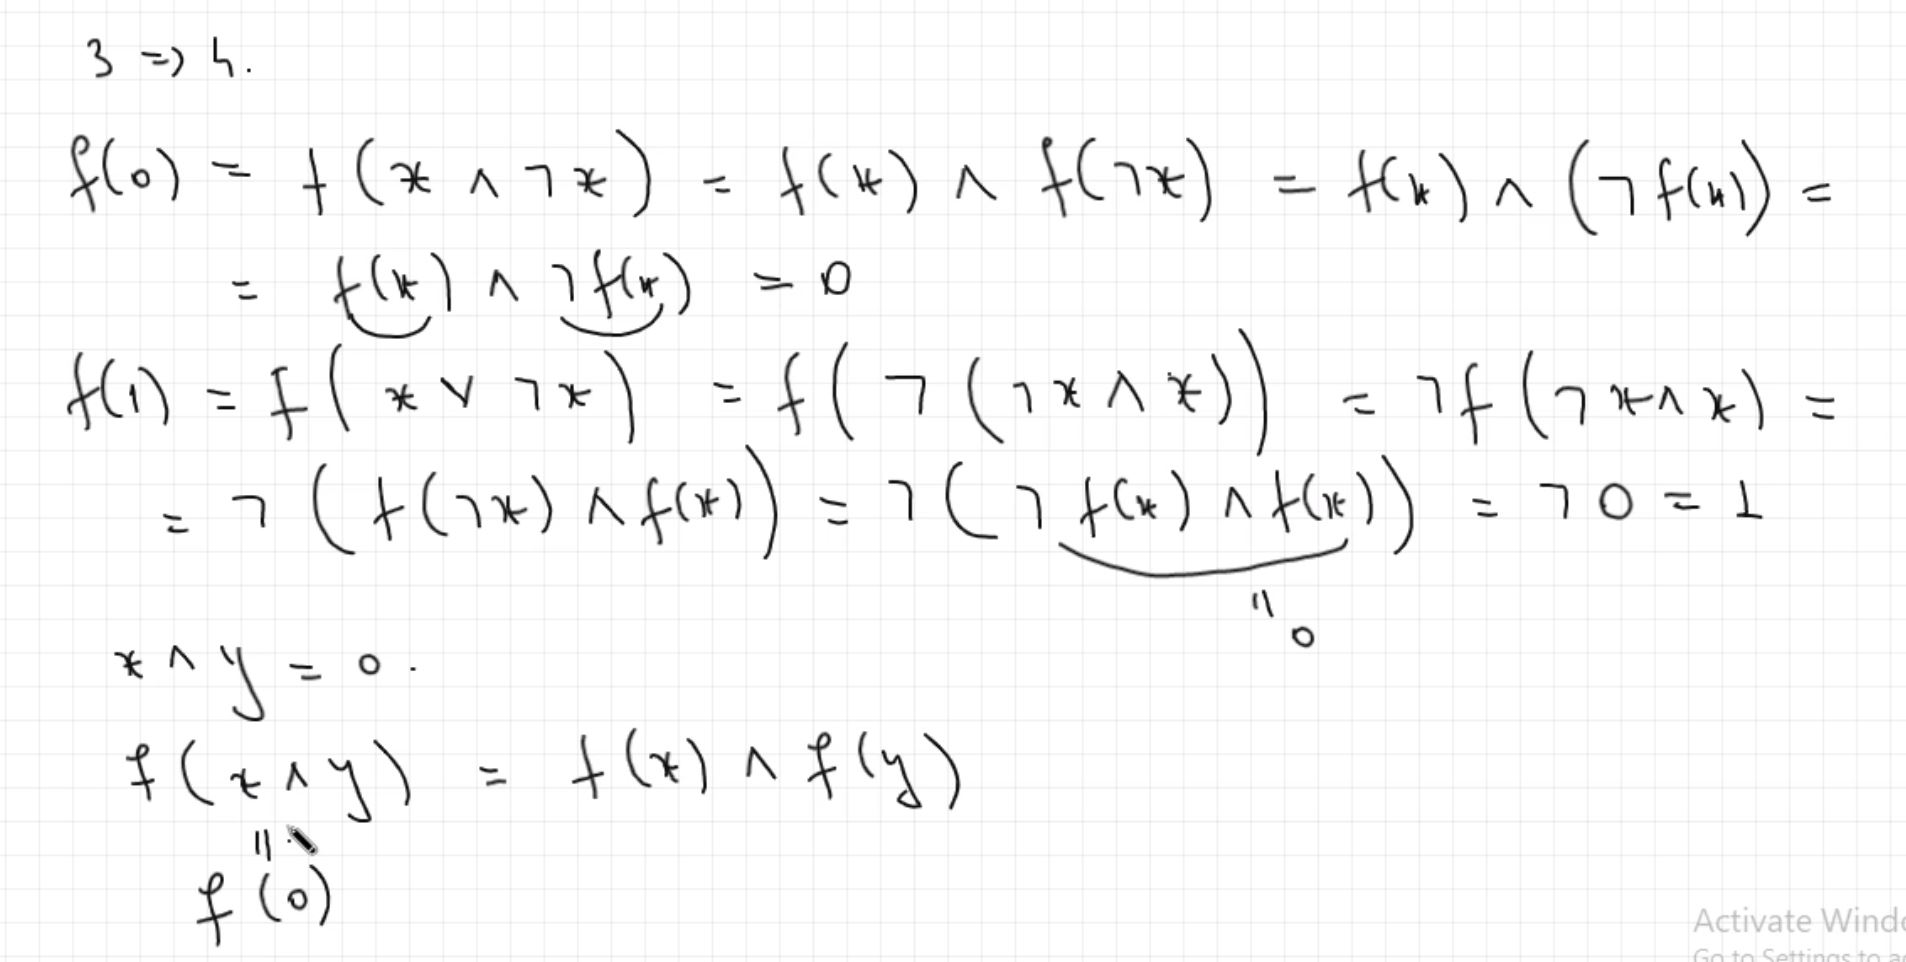 3 => 4.
f(0) = f(x ∧ ¬x) = f(x) ∧ f(¬x) = f(x) ∧ (¬f(x)) =
= f(x) ∧ ¬f(x) = 0
f(1) = f(x ∨ ¬x) = f(¬(¬x ∧ x)) = ¬f(¬x ∧ x) =
= ¬(f(¬x) ∧ f(x)) = ¬(¬f(x) ∧ f(x)) = ¬0 = 1
"
0
x ∧ y = 0.
f(x ∧ y) = f(x) ∧ f(y)
"
f(0)
Activate Windo
Go to Settings to a